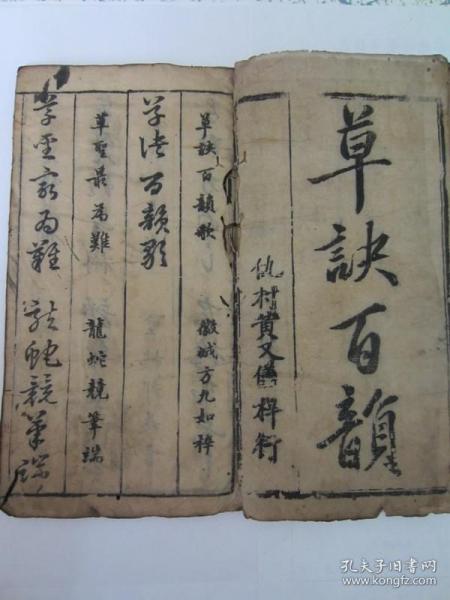 草訣百韻
村黄又梓行
草訣百韻歌 徽城方九如梓
草訣百韻歌
草聖最為難 龍蛇競筆端
草聖最為難 龍蛇競筆端
孔夫子旧书网
www.kongfz.com